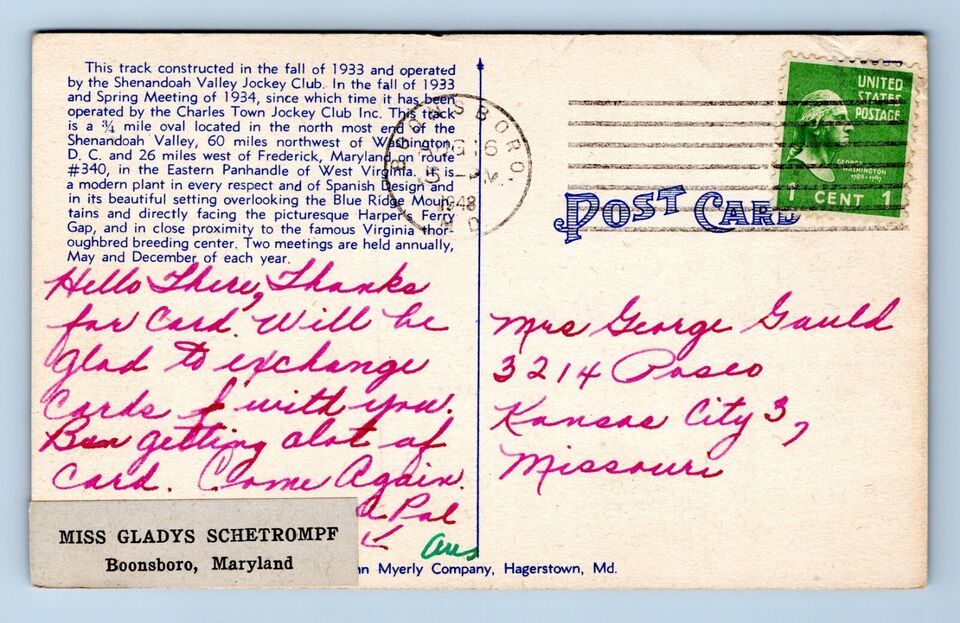 This track constructed in the fall of 1933 and operated
by the Shenandoah Valley Jockey Club. In the fall of 1933
and Spring Meeting of 1934, since which time it has been
operated by the Charles Town Jockey Club Inc. This track
is a ¾ mile oval located in the north most end of the
Shenandoah Valley, 60 miles northwest of Washington,
D. C. and 26 miles west of Frederick, Maryland on route
#340, in the Eastern Panhandle of West Virginia. It is
a modern plant in every respect and of Spanish Design and
in its beautiful setting overlooking the Blue Ridge Moun
tains and directly facing the picturesque Harper's Ferry
Gap, and in close proximity to the famous Virginia thor
oughbred breeding center. Two meetings are held annually,
May and December of each year.
Hello There, Thanks
for Card. Will be
glad to exchange
Cards with you.
Ben getting alot of
card. Come Again.
a Pal
Ans
MISS GLADYS SCHETROMPF
Boonsboro, Maryland
nn Myerly Company, Hagerstown, Md.
BOONSBORO.
16
1948
MD
UNITED
STATES
POSTAGE
GEORGE
WASHINGTON
1789-1797
1 CENT 1
POST CARD
Mrs George Gauld
3214 Paseo
Kansas City 3,
Missouri